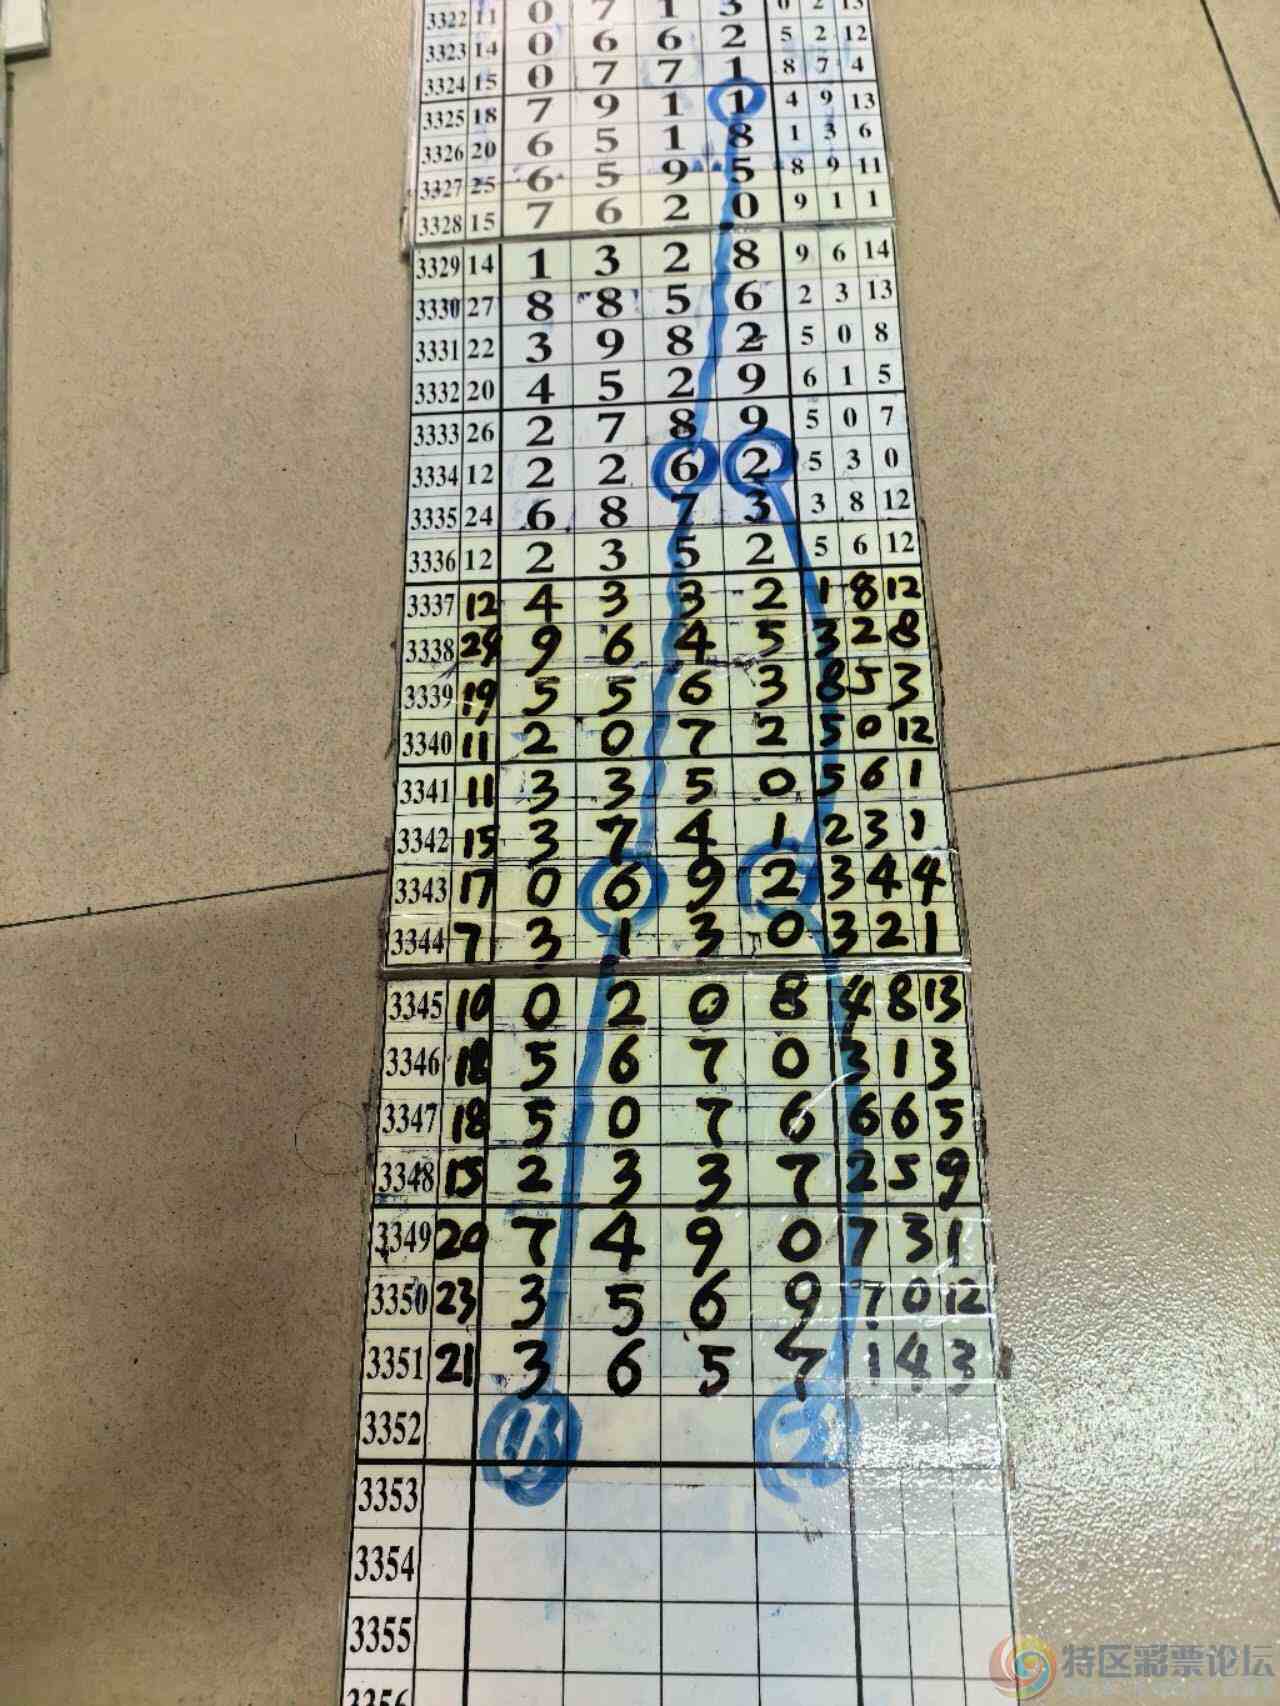 3322 11 0 7 1 3 0 2 13
3323 14 0 6 6 2 5 2 12
3324 15 0 7 7 1 8 7 4
3325 18 7 9 1 1 4 9 13
3326 20 6 5 1 8 1 3 6
3327 25 6 5 9 5 8 9 11
3328 15 7 6 2 0 9 1 1
3329 14 1 3 2 8 9 6 14
3330 27 8 8 5 6 2 3 13
3331 22 3 9 8 2 5 0 8
3332 20 4 5 2 9 6 1 5
3333 26 2 7 8 9 5 0 7
3334 12 2 2 6 2 5 3 0
3335 24 6 8 7 3 3 8 12
3336 12 2 3 5 2 5 6 12
3337 12 4 3 3 2 1 8 12
3338 24 9 6 4 5 3 2 8
3339 19 5 5 6 3 8 5 3
3340 11 2 0 7 2 5 0 12
3341 11 3 3 5 0 5 6 1
3342 15 3 7 4 1 2 3 1
3343 17 0 6 9 2 3 4 4
3344 7 3 1 3 0 3 2 1
3345 10 0 2 0 8 4 8 13
3346 18 5 6 7 0 3 1 3
3347 18 5 0 7 6 6 6 5
3348 15 2 3 3 7 2 5 9
3349 20 7 4 9 0 7 3 1
3350 23 3 5 6 9 7 0 12
3351 21 3 6 5 7 1 4 3
3352 2
3353
3354
3355
3356
特区彩票论坛